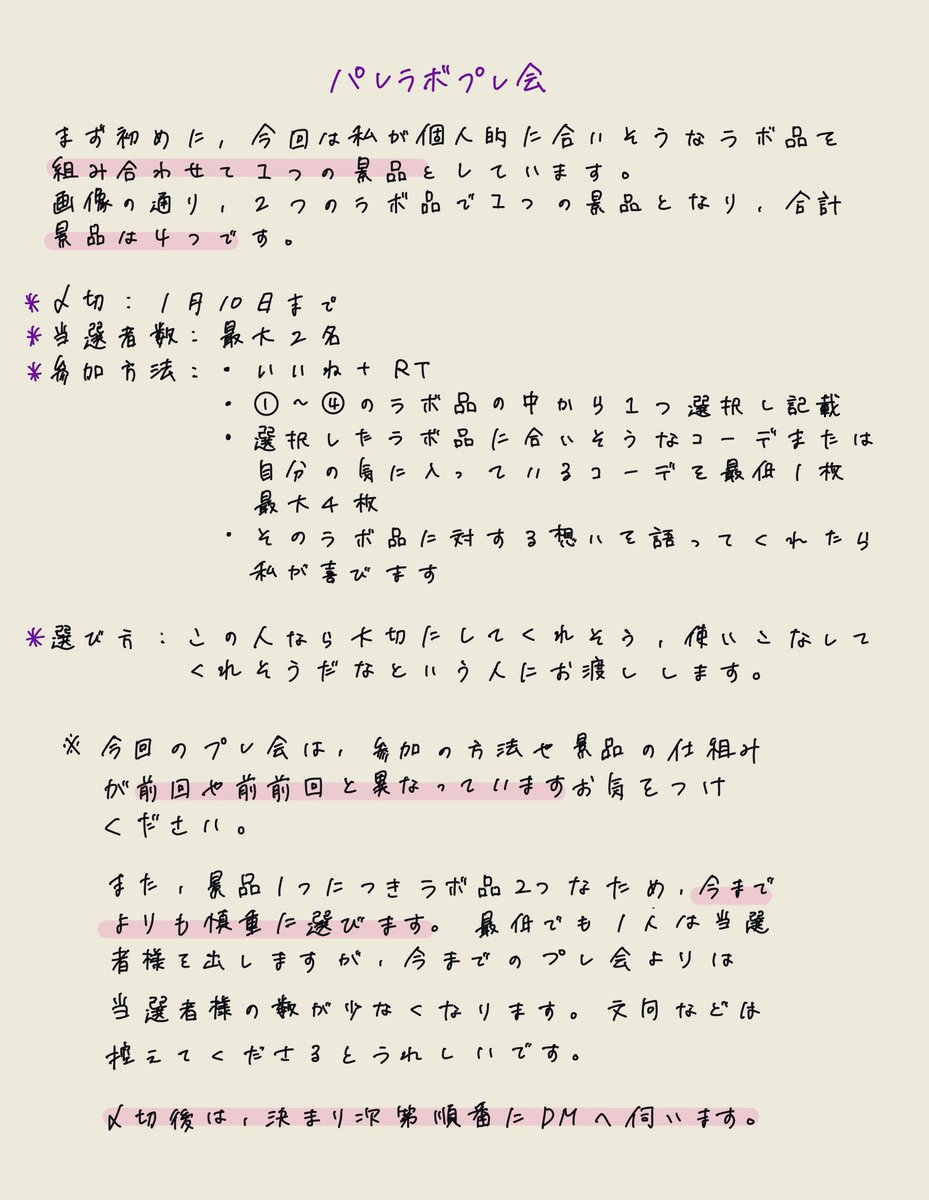 パレラボプレ会
まず初めに、今回は私が個人的に合いそうなラボ品を
組み合わせて1つの景品としています。
画像の通り、2つのラボ品で1つの景品となり、合計
景品は4つです。
*〆切:1月10日まで
*当選者数:最大2名
*参加方法:・いいね+RT
・①~④のラボ品の中から1つ選択し記載
・選択したラボ品に合いそうなコーデまたは
自分の気に入っているコーデを最低1枚
最大4枚
・そのラボ品に対する想いを語ってくれたら
私が喜びます
*選び方:この人なら大切にしてくれそう、使いこなして
くれそうだなという人にお渡しします。
※今回のプレ会は、参加の方法や景品の仕組み
が前回や前前回と異なっていますお気をつけ
ください。
また、景品1つにつきラボ品2つなため、今まで
よりも慎重に選びます。最低でも1人は当選
者様を出しますが、今までのプレ会よりは
当選者様の数が少なくなります。文句などは
控えてくださるとうれしいです。
〆切後は、決まり次第順番にDMへ伺います。